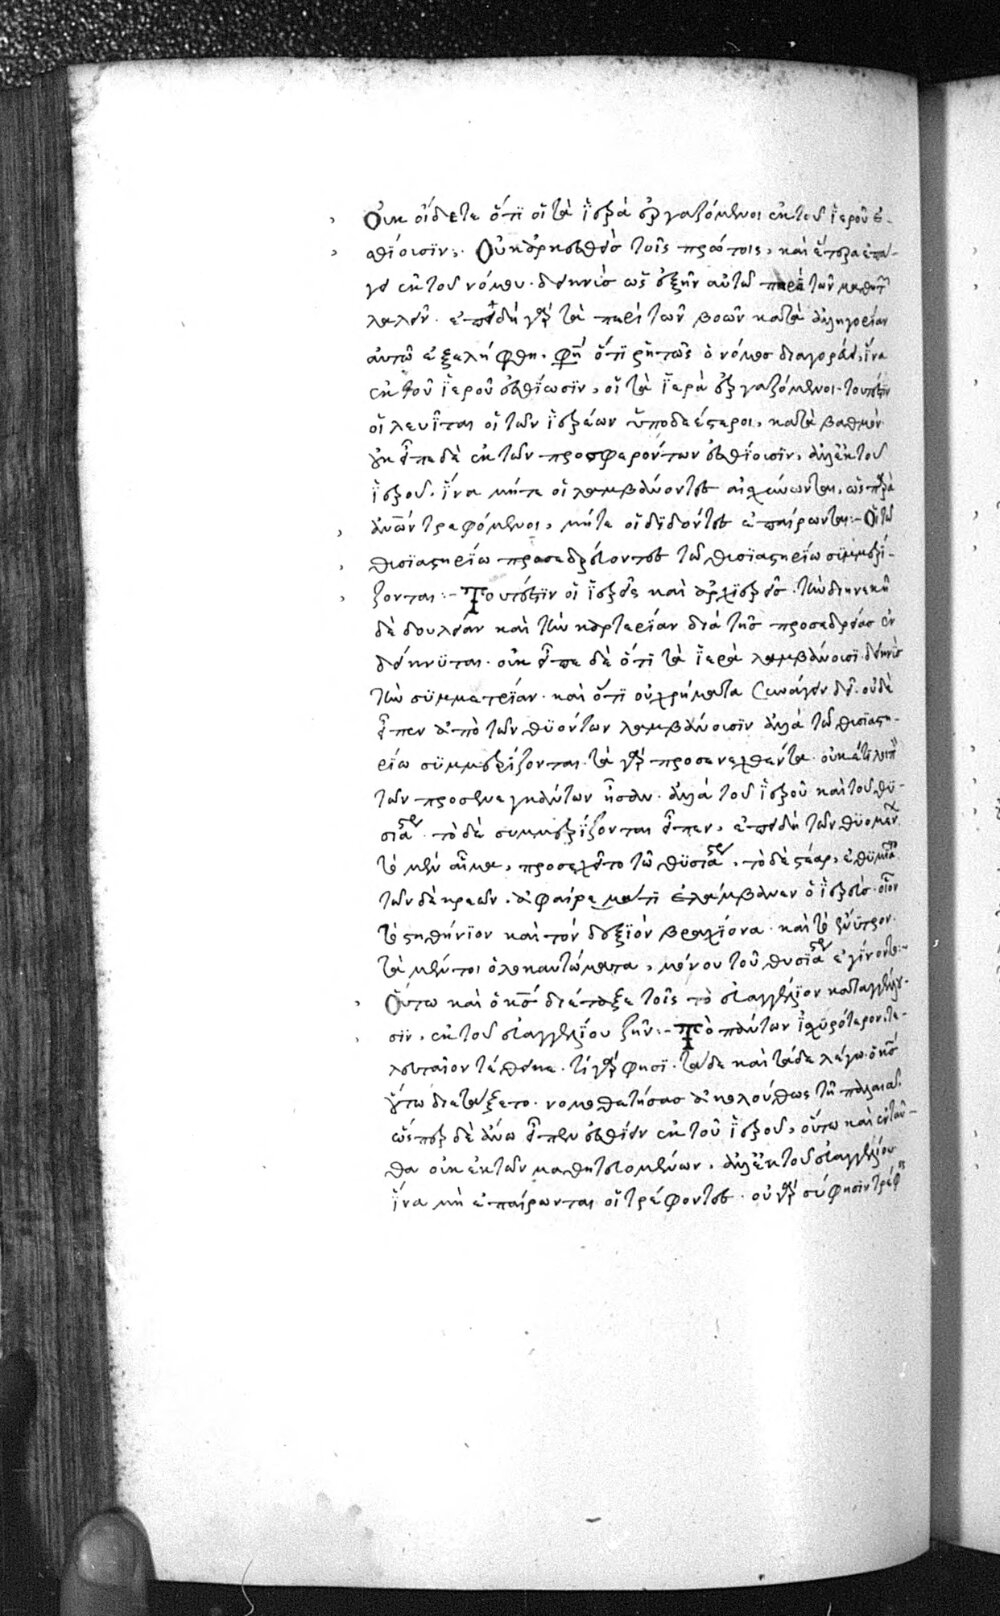 Οὐκ οἴδατε ὅτι οἱ τὰ ἱερὰ ἐργαζόμενοι ἐκ τοῦ ἱεροῦ ἐ-
σθίουσιν:. Οὐκ ἀρκεσθεὶς τοῖς πρώτοις, καὶ ἕτερα ἐπά-
γει ἐκ τοῦ νόμου. δεικνὺς ὡς ἐξῆν αὐτῶ παρὰ τῶν μαθητῶν
λαβεῖν. ἐπειδὴ γὰρ τὰ περὶ τῶν βοῶν κατὰ ἀλληγορίαν
αὐτῶ ἐξελήφθη. φησὶ ὅτι ῥητῶς ὁ νόμος διαγορεύει, ἵνα
ἐκ τοῦ ἱεροῦ ἐσθίωσιν, οἱ τὰ ἱερὰ ἐργαζόμενοι. τουτέστιν
οἱ λευῖται οἱ τῶν ἱερέων ὑποδεέστεροι, κατὰ βαθμόν.
οὐκ εἶπε δὲ ἐκ τῶν προσφερόντων ἐσθίουσιν, ἀλλ' ἐκ τοῦ
ἱεροῦ. ἵνα μήτε οἱ λαμβάνοντες αἰσχύνωνται, ὡς παρὰ
ἀνων τρεφόμενοι, μήτε οἱ διδόντες ἐπαίρωνται:- Οἱ τῶ
θυσιαστηρίω προσεδρεύοντες τῶ θυσιαστηρίω συμμερί-
ζονται:- Τουτέστιν οἱ ἱερεῖς καὶ ἀρχιερεῖς. τὴν διηνεκῆ
δὲ δουλείαν καὶ τὴν καρτερίαν διὰ τῆς προσεδρείας ἐν
δείκνυται. οὐκ εἶπε δὲ ὅτι τὰ ἱερὰ λαμβάνουσι. δεικνὺς
τὴν συμμετρίαν. καὶ ὅτι οὐ χρήματα συνάγειν δεῖ. οὐδὲ
εἶπεν ἀπὸ τῶν θυόντων λαμβάνουσιν ἀλλὰ τῶ θυσιαστη-
ρίω συμμερίζονται. τὰ γὰρ προσενεχθέντα. οὐκ ἔτι λοιπὸν
τῶν προσενεγκάντων ἦσαν. ἀλλὰ τοῦ ἱεροῦ καὶ τοῦ θυ-
σιαστηρίου. τὸ δὲ συμμερίζονται εἶπεν, ἐπειδὴ τῶν θυομένων
τὸ μὲν αἷμα, προσεχεῖτο τῶ θυσιαστηρίω, τὸ δὲ στέαρ, ἐθυμιᾶτο
τῶν δὲ κρεῶν. ἀφαίρεμά τι ἐλάμβανεν ὁ ἱερεύς. οἷον
τὸ στηθύνιον καὶ τὸν δεξιὸν βραχίονα. καὶ τὸ ἔνυστρον.
τὰ μέντοι ὁλοκαυτώματα, μόνου τοῦ θυσιαστηρίου ἐγίνοντο:-
Οὕτω καὶ ὁ κς διέταξε τοῖς τὸ εὐαγγέλιον καταγγέλου-
σιν, ἐκ τοῦ εὐαγγελίου ζῆν:- Τὸ πάντων ἰσχυρότερον, τε-
λευταῖον τέθεικε. τί γὰρ φησι. τάδε καὶ τάδε λέγω. ὁ κς
οὕτω διετάξατο. νομοθετήσας ἀκολούθως τῆ παλαιᾶ.
ὥσπερ δὲ ἄνω εἶπεν ἐσθίειν ἐκ τοῦ ἱεροῦ, οὕτω καὶ ἐνταῦ-
θα οὐκ ἐκ τῶν μαθητευομένων, ἀλλ' ἐκ τοῦ εὐαγγελίου
ἵνα μὴ ἐπαίρωνται οἱ τρέφοντες. οὐ γὰρ σύ φησιν τρέφεις